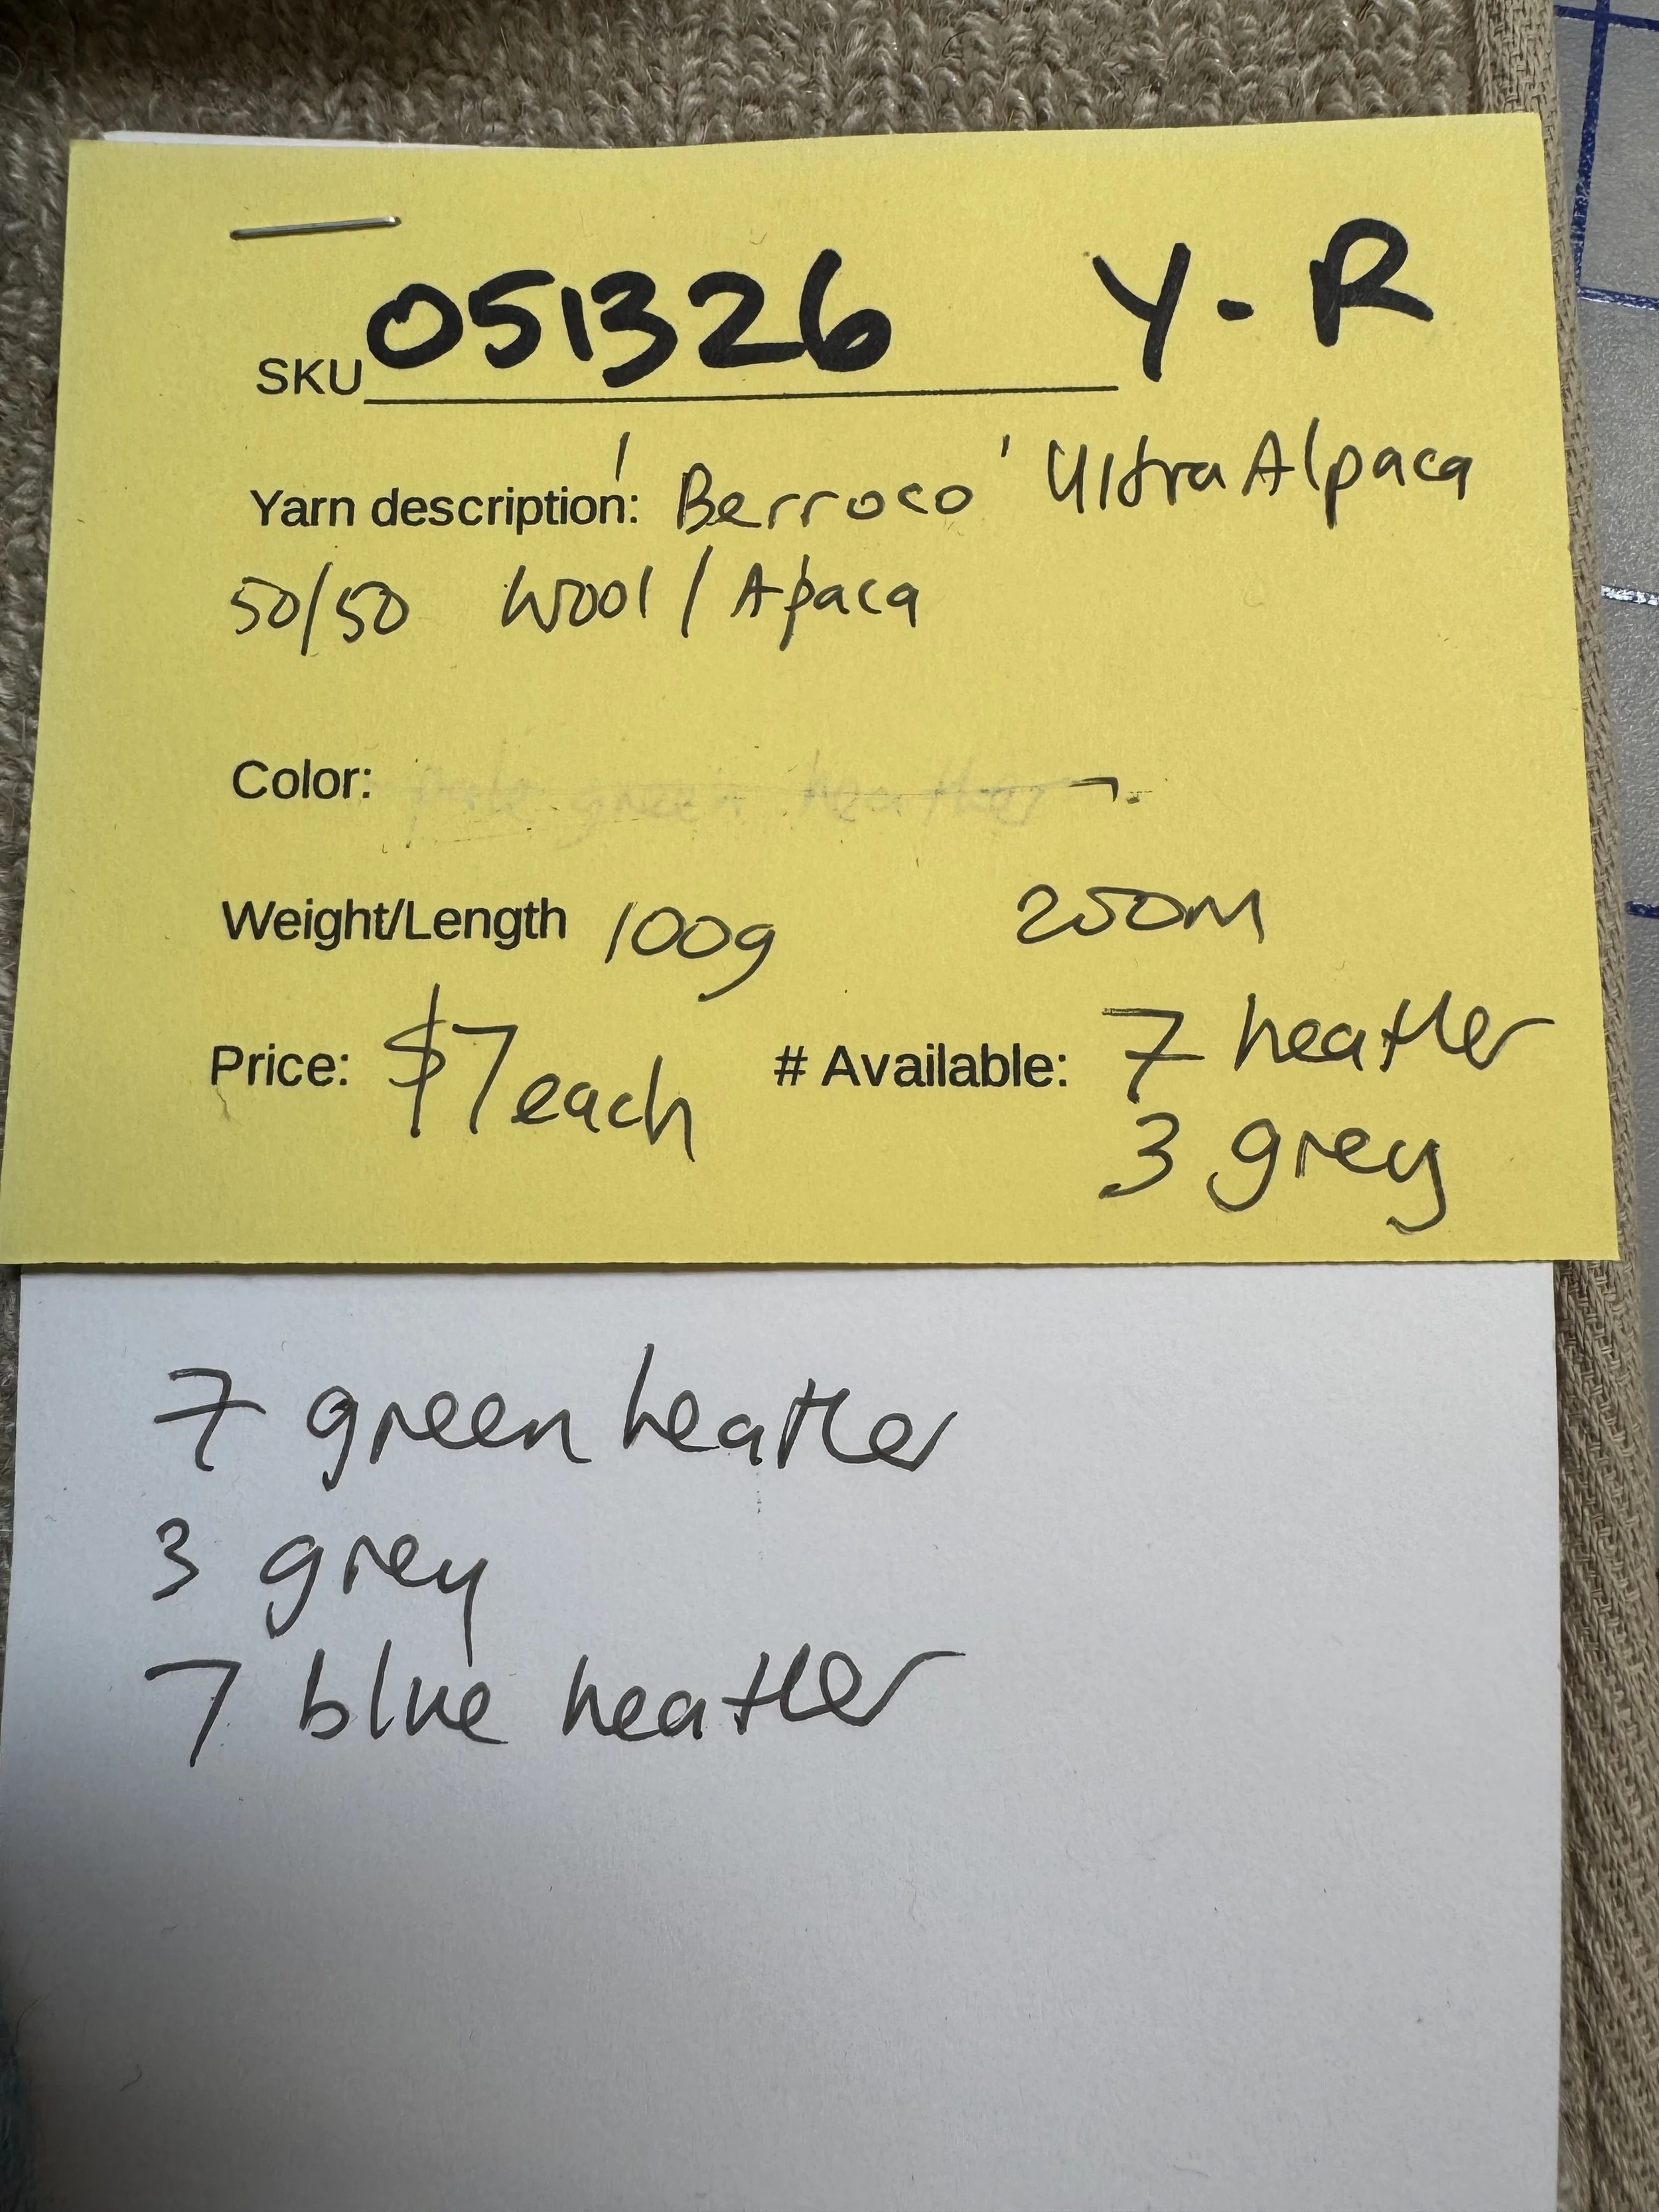 SKU 051326 Y-R
Yarn description: 'Berroco' Ultra Alpaca
50/50 Wool / Apaca
Color: pale green heather
Weight/Length 100g 200m
Price: $7 each # Available: 7 heather
3 grey
7 green heather
3 grey
7 blue heather